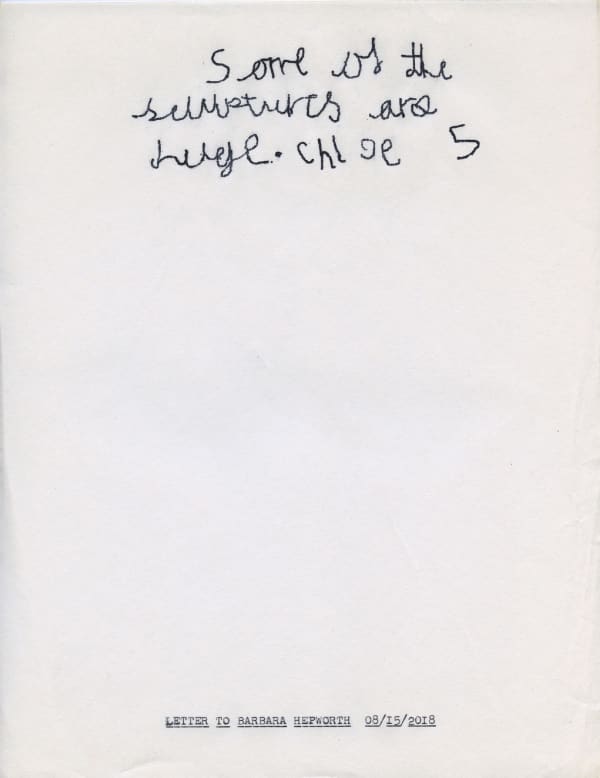 Some of the
sculptures are
huge. Chloe 5
LETTER TO BARBARA HEPWORTH 08/15/2018